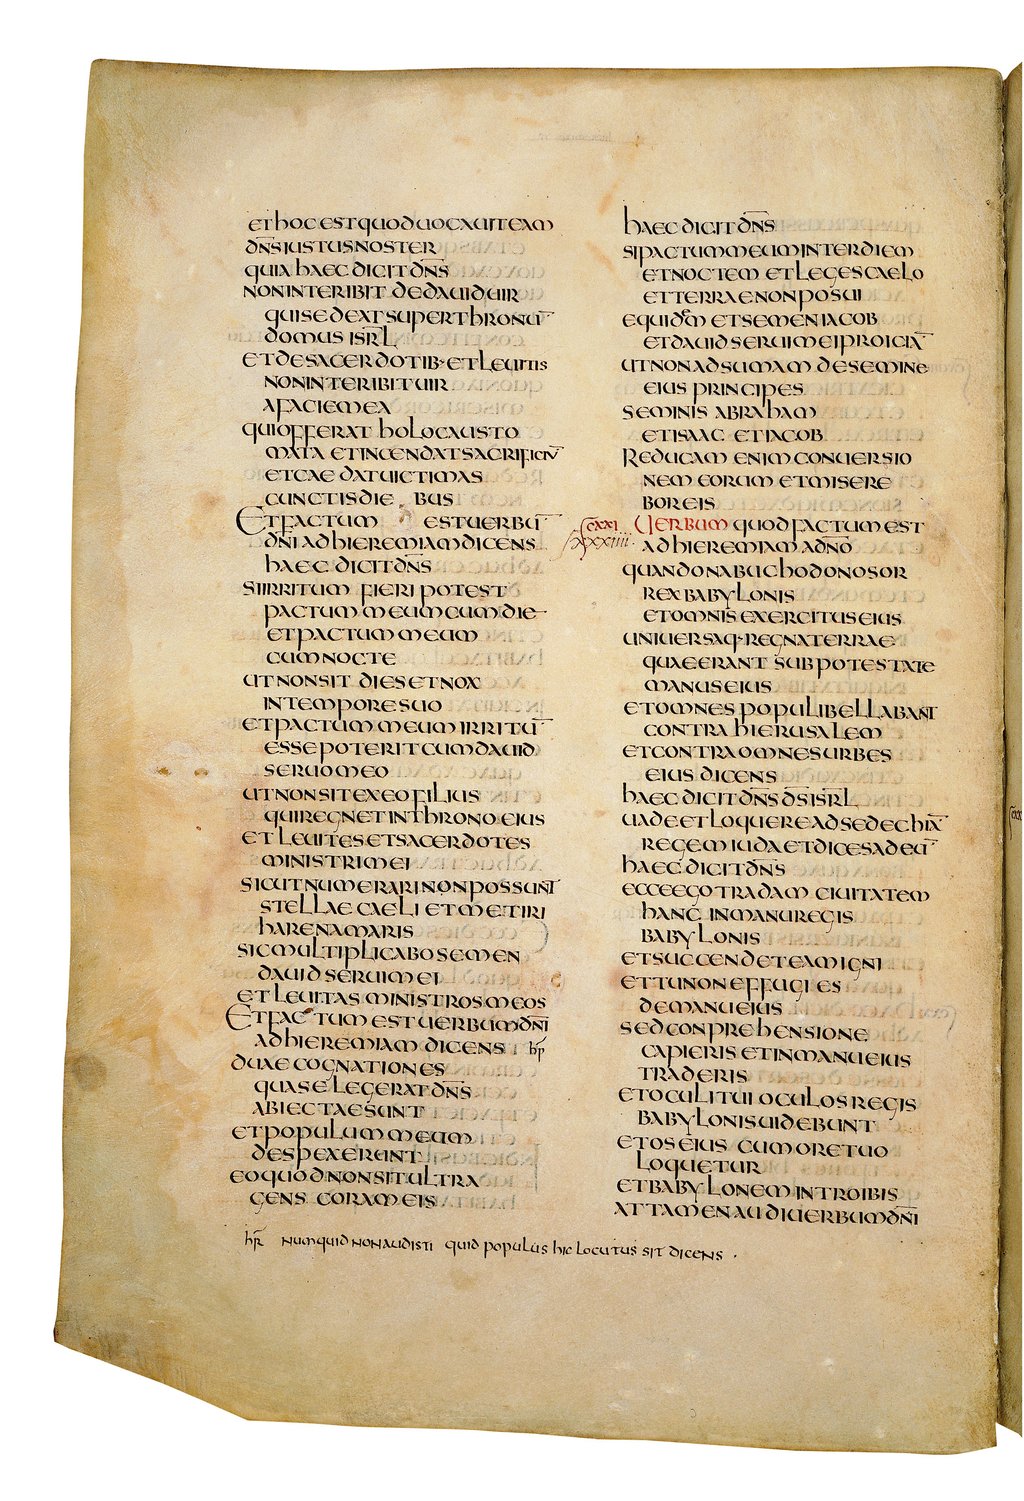 ethocestquoduocauit eam
dn̄s iustus noster
quia haec dicit dn̄s
non interibit de dauid uir
qui sedeat super thronū
domus isr̄l
et de sacerdotib· et leuitis
non interibit uir
a facie mea
qui offerat holocausto
mata et incendat sacrificiū
et caedat uictimas
cunctis die bus
Et factum est uerbū
dn̄i ad hieremiam dicens
haec dicit dn̄s
si irritum fieri potest
pactum meum cum die
et pactum meum
cum nocte
ut non sit dies et nox
in tempore suo
et pactum meum irritū
esse poterit cum dauid
seruo meo
ut non sit ex eo filius
qui regnet in throno eius
et leuites et sacerdotes
ministri mei
sicut numerari non possunt
stellae caeli et metiri
harena maris
sic multiplicabo semen
dauid serui mei
et leuitas ministros meos
Et factum est uerbum dn̄i
ad hieremiam dicens hr̄
duae cognationes
quas elegerat dn̄s
abiectae sunt
et populum meum
despexerunt
eo quod non sit ultra
gens coram eis
hr̄ numquid non audisti quid populus hic locutus sit dicens .
haec dicit dn̄s
si pactum meum inter diem
et noctem et leges caelo
et terrae non posui
equidem et semen iacob
et dauid serui mei proiciā
ut non adsumam de semine
eius principes
seminis abraham
et isaac et iacob
Reducam enim conuersio
nem eorum et misere
bor eis
ccxxi Uerbum quod factum est
xxxiiii. ad hieremiam a dn̄o
quando nabuchodonosor
rex babylonis
et omnis exercitus eius
uniuersaq· regna terrae
quae erant sub potestate
manus eius
et omnes populi bellabant
contra hierusalem
et contra omnes urbes
eius dicens
haec dicit dn̄s d̄s isr̄l
uade et loquere ad sedechiā
regem iuda et dices ad eū
haec dicit dn̄s
ecce ego tradam ciuitatem
hanc in manu regis
babylonis
et succendet eam igni
et tu non effugies
de manu eius
sed conprehensione
capieris et in manu eius
traderis
et oculi tui oculos regis
babylonis uidebunt
et os eius cum ore tuo
loquetur
et babylonem introibis
attamen audi uerbum dn̄i